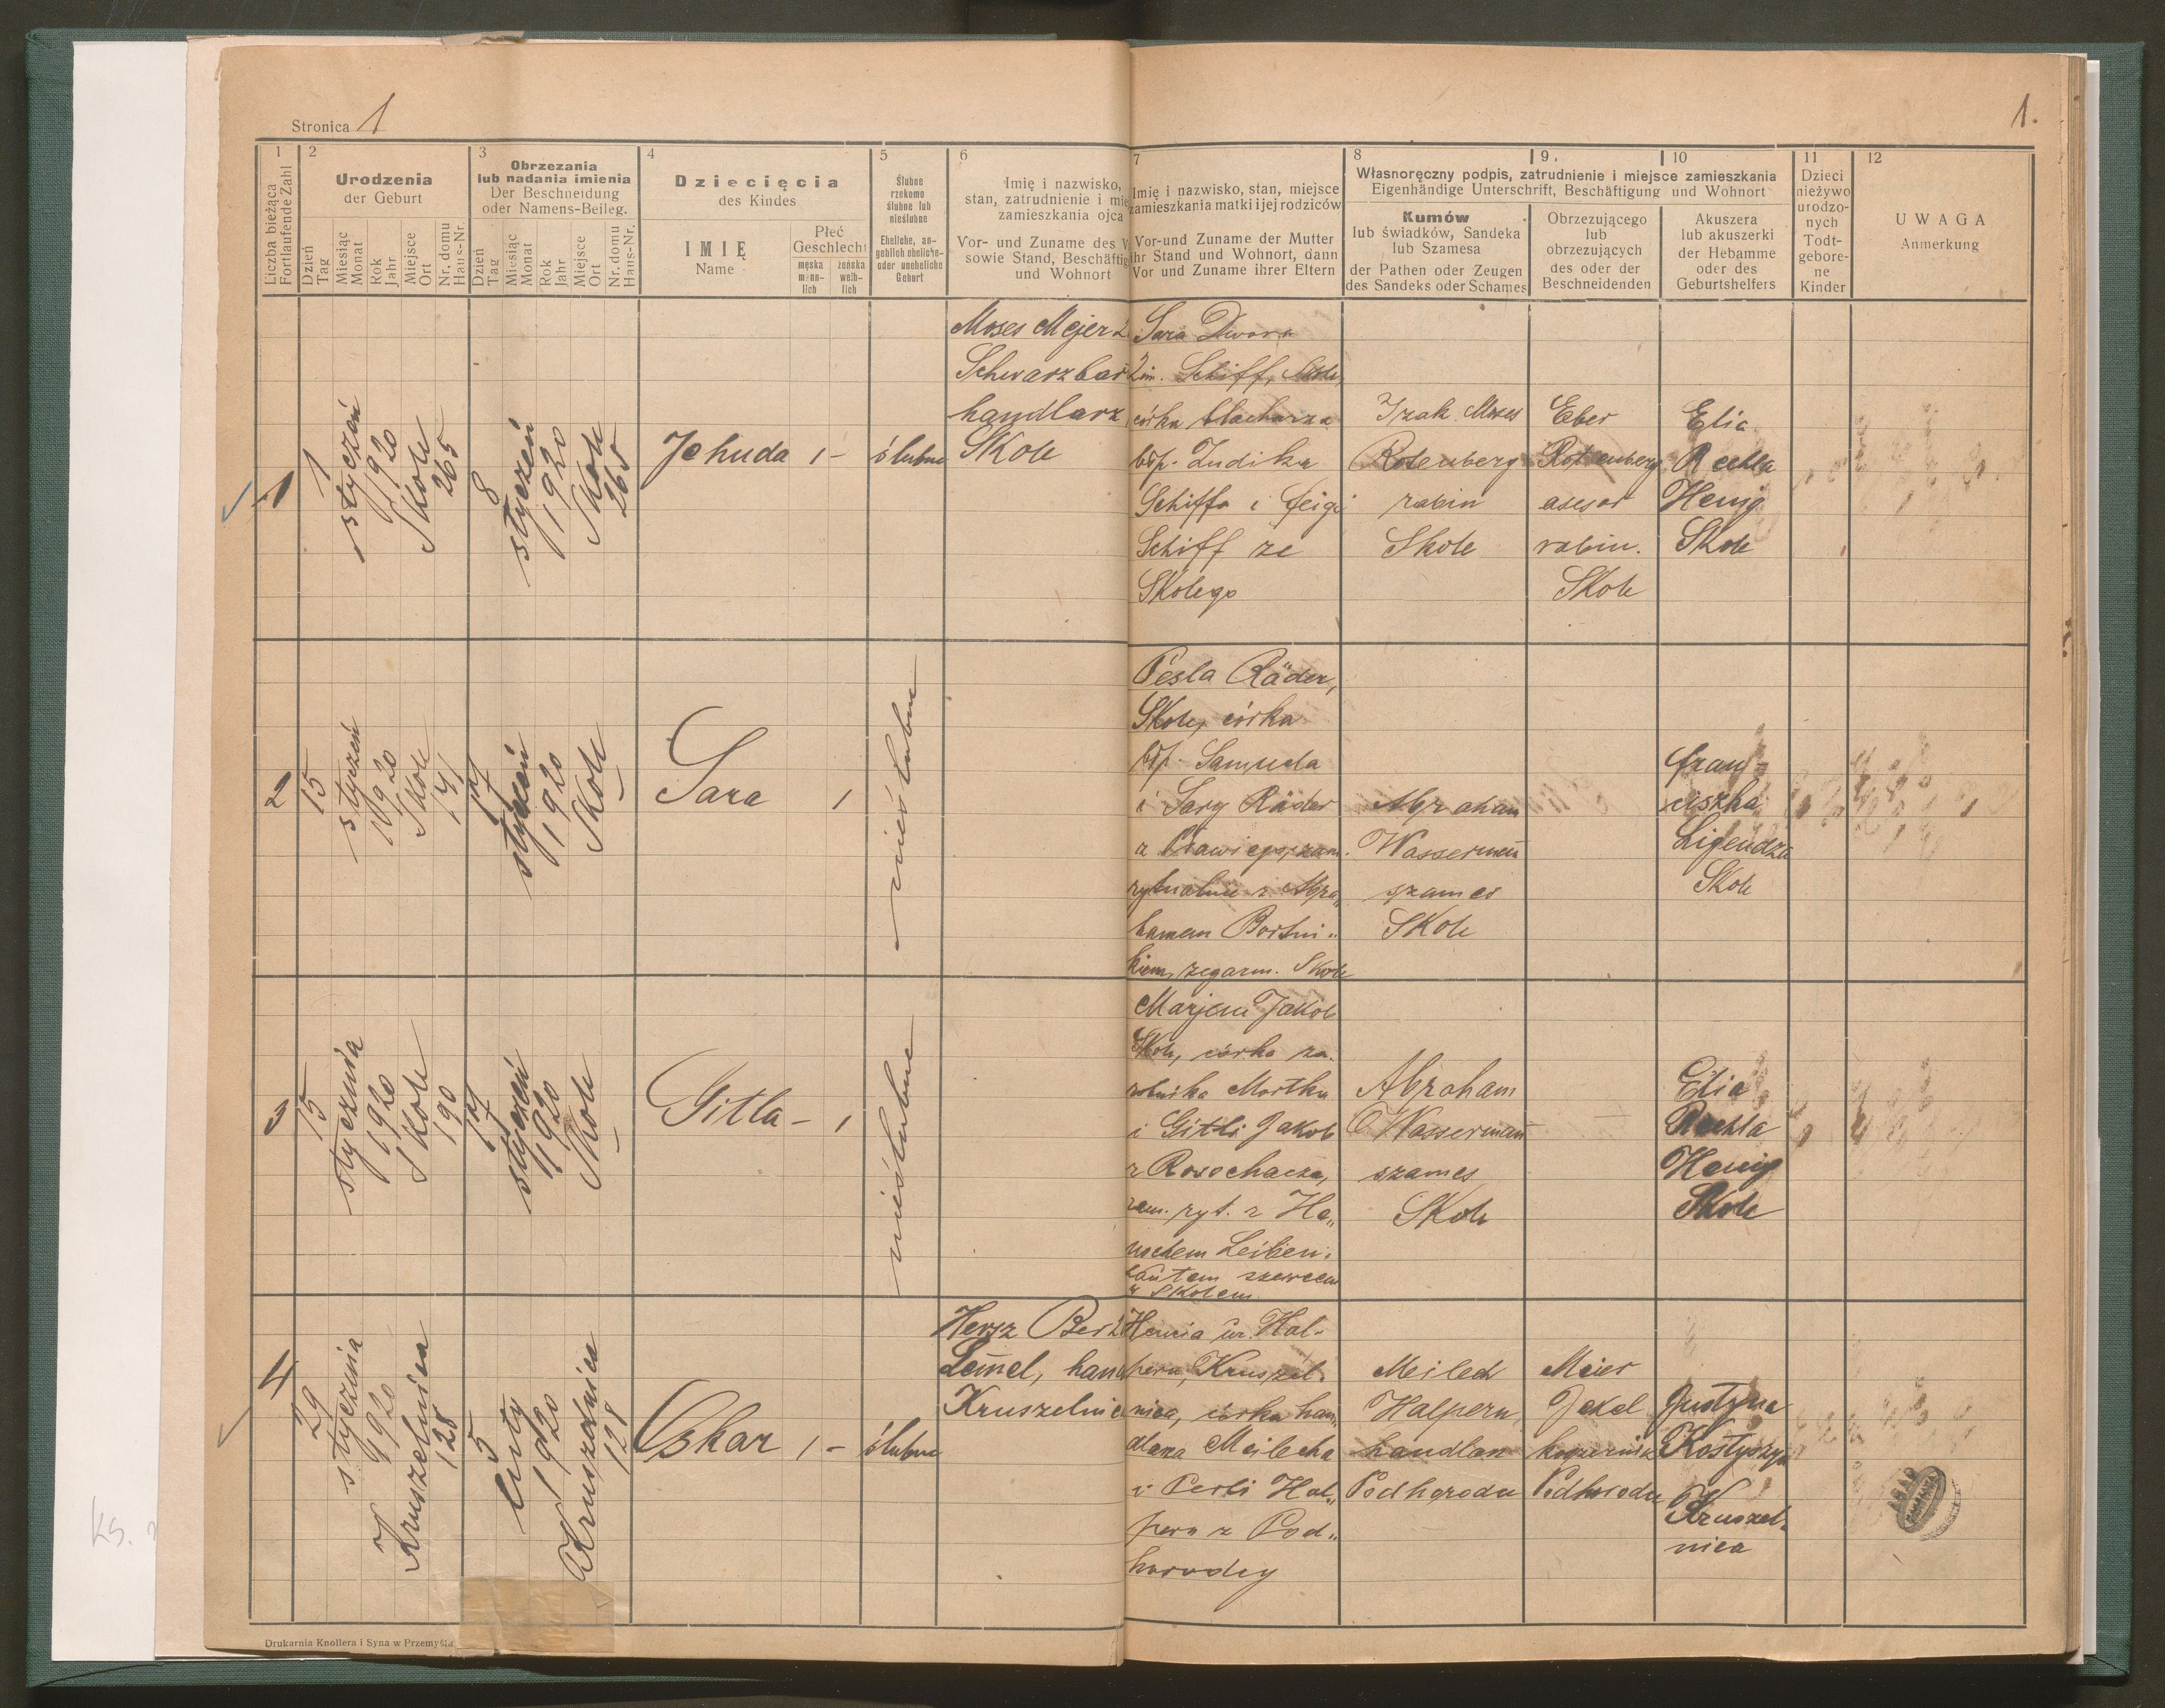 Stronica 1
1.
1
Liczba bieżąca
Fortlaufende Zahl
2
Urodzenia
der Geburt
Dzień
Tag
Miesiąc
Monat
Rok
Jahr
Miejsce
Ort
Nr. domu
Haus-Nr.
3
Obrzezania
lub nadania imienia
Der Beschneidung
oder Namens-Beileg.
Dzień
Tag
Miesiąc
Monat
Rok
Jahr
Miejsce
Ort
Nr. domu
Haus-Nr.
4
Dziecięcia
des Kindes
IMIĘ
Name
Płeć
Geschlecht
męska
männ-
lich
żeńska
weib-
lich
5
Ślubne
rzekomo
ślubne lub
nieślubne
Eheliche, an-
geblich eheliche-
oder uneheliche
Geburt
6
Imię i nazwisko,
stan, zatrudnienie i mie
zamieszkania ojca
Vor- und Zuname des V
sowie Stand, Beschäftig
und Wohnort
7
Imię i nazwisko, stan, miejsce
zamieszkania matki i jej rodziców
Vor-und Zuname der Mutter
ihr Stand und Wohnort, dann
Vor und Zuname ihrer Eltern
8
9.
10
Własnoręczny podpis, zatrudnienie i miejsce zamieszkania
Eigenhändige Unterschrift, Beschäftigung und Wohnort
Kumów
lub świadków, Sandeka
lub Szamesa
der Pathen oder Zeugen
des Sandeks oder Schames
Obrzezującego
lub
obrzezujących
des oder der
Beschneidenden
Akuszera
lub akuszerki
der Hebamme
oder des
Geburtshelfers
11
Dzieci
nieżywo
urodzo-
nych
Todt-
gebore-
ne
Kinder
12
UWAGA
Anmerkung
1
1
styczeń
1920
Skole
265
8
styczeń
1920
Skole
265
Jehuda 1 -
ślubne
Moses Mejer
Schwarzbar
handlarz
Skole
Sara Dwora
Schiff, Skole
córka blacharza
Judika
Schiffa i Feigi
Schiff ze
Skolego
Izak Moses
Rotenberg
rabin
Skole
Eber
Rotenberg
asesor
rabin.
Skole
Elia
Rechla
Henig
Skole
2
15
styczeń
1920
Skole
171
17
styczeń
1920
Skole
Sara 1
nieślubne
Pesla Räder,
Skole, córka
Samuela
i Sary Räder
a
rytualnie z Abra„
hamem Bortni„
kiem, zegarm. Skole
Abraham
Wasserman
szames
Skole
Fran-
ciszka
Ligendza
Skole
3
15
stycznia
1920
Skole
190
17
styczeń
1920
Skole
Gitla - 1
nieślubne
Marjem Jakob
Skole, córka za-
robnika Mortka
i Gitli Jakob
z Rosochacza,
zam. ryt. z Ha„
nochem
szewcem
w Skolem.
Abraham
Wasserman
szames
Skole
Elia
Rechla
Henig
Skole
4
29
stycznia
1920
Kruszelnica
128
5
luty
1920
Kruszelnica
128
Oskar 1 -
ślubne
Hersz Ber
Leimel, hand
Kruszelnic
Hencia ur. Hal-
pern, Kruszel-
nica, córka han„
dlarza Meilecha
i Perli Hal„
pern z Pod„
horodey
Meilech
Halpern
handlarz
Podhorodce
Meier
Jekel
Podhorodce
Justyna
Kostyszyn
Kruszel-
nica
Drukarnia Knollera i Syna w Przemyślu
AGAD